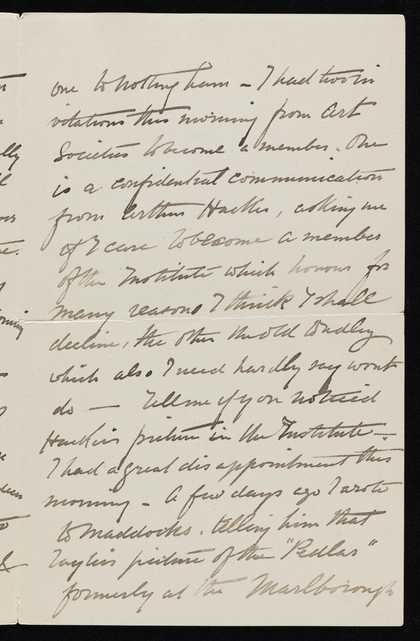 one to Nottingham – I had two in
vitations this morning from Art
Societies to become a member. One
is a confidential communication
from Arthur Hacker, asking me
if I care to become a member
of the Institute which honour for
many reasons I think I shall
decline, the other the old Dudley
which also I need hardly say wont
do — Tell me if you noticed
Hacker's picture in the Institute –
I had a great disappointment this
morning – A few days ago I wrote
to Maddocks. telling him that
picture of the "Pedlar"
formerly at the Marlborough